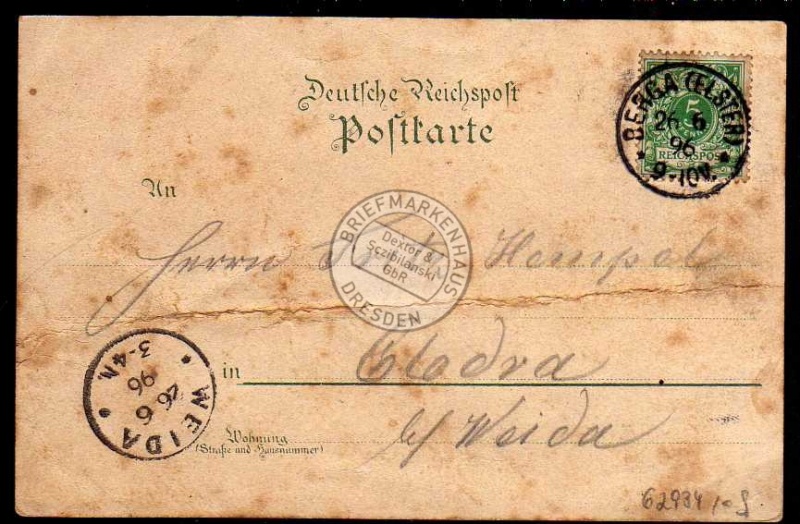 Deutsche Reichspost
Postkarte
BERGA (ELSTER)
26 6
96
9-10V.
5
REICHSPOST
An
Herrn
BRIEFMARKENHAUS
Dexter &
Sczibilanski
GbR
DRESDEN
in
b/ Weida
Wohnung
(Straße und Hausnummer)
WEIDA
26 6
96
3-4N.
62934